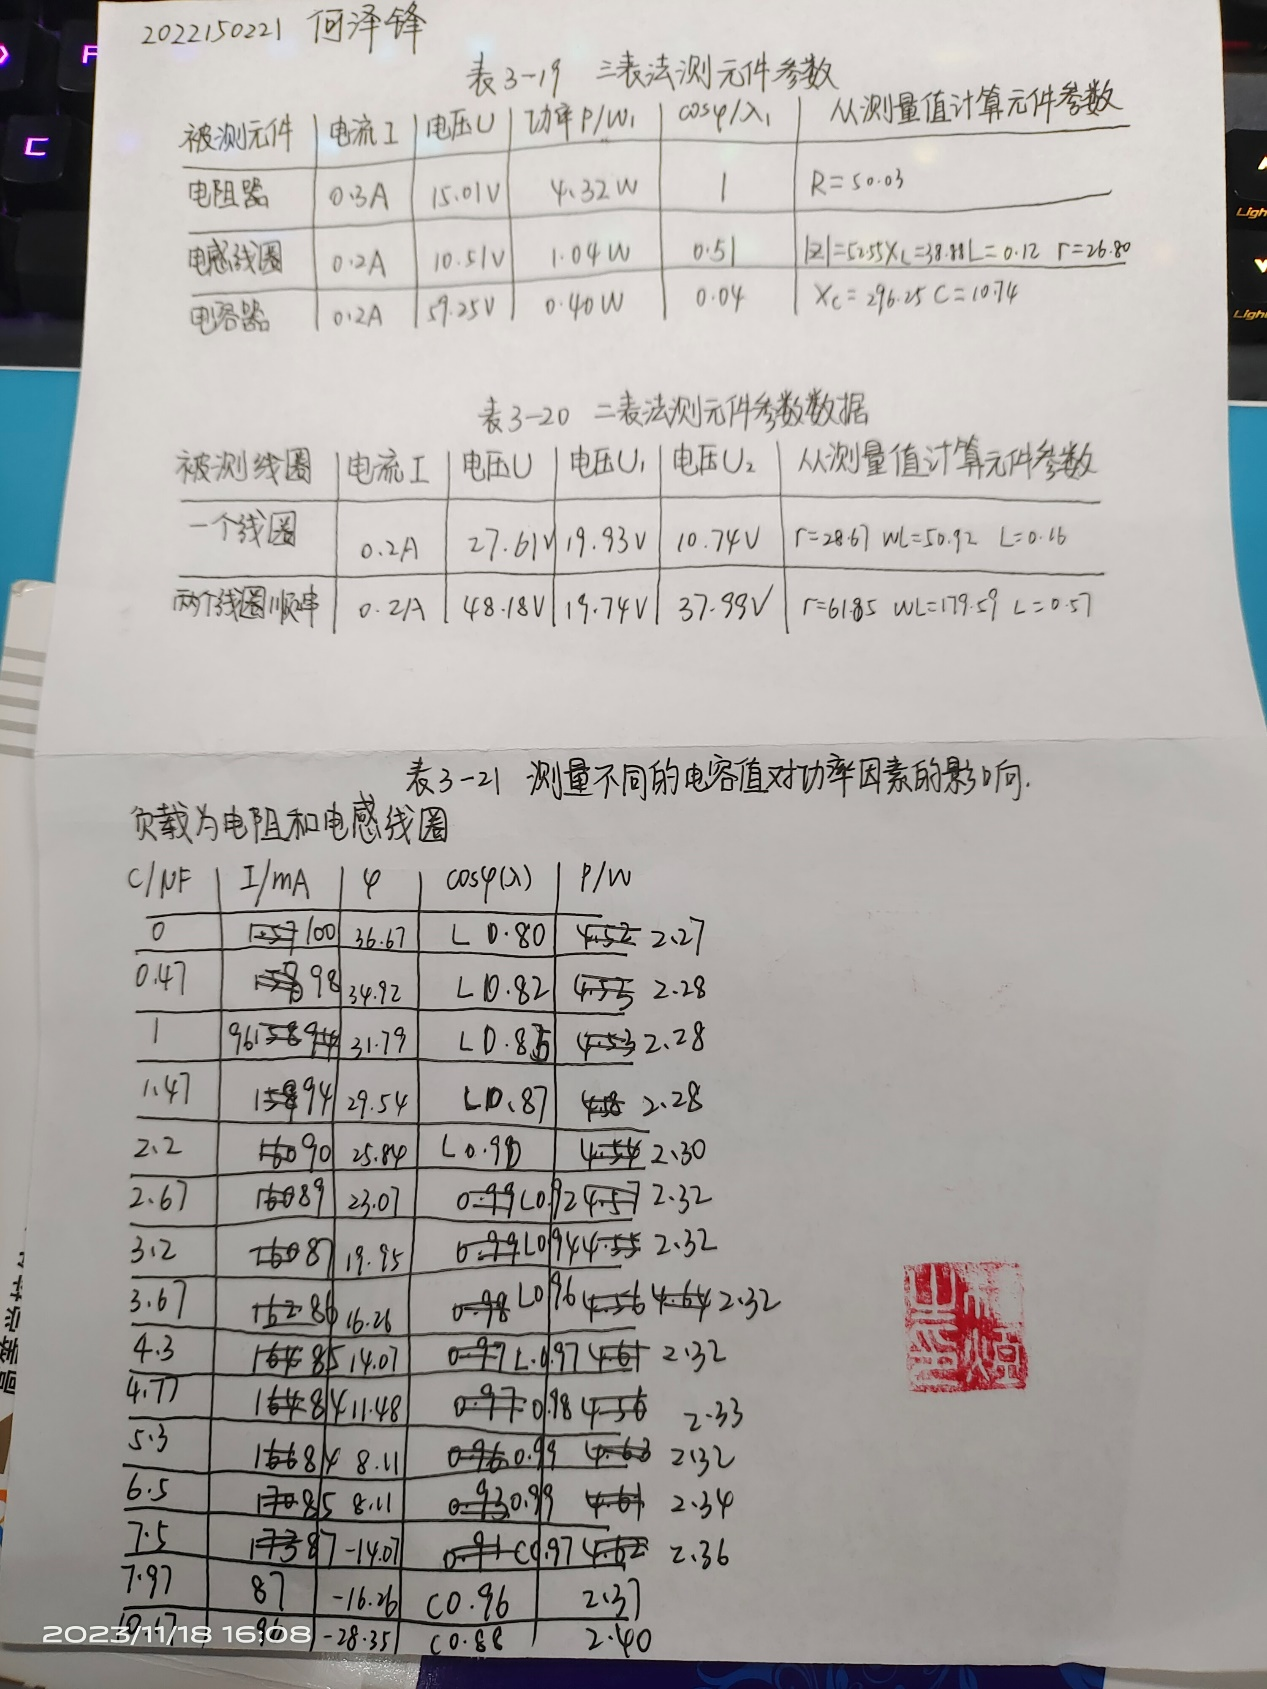 2022150221 何泽锋
表3-19 三表法测元件参数
被测元件 电流I 电压U 功率P/W₁ cosφ/λ₁ 从测量值计算元件参数
电阻器 0.3A 15.01V 4.32W 1 R=50.03
电感线圈 0.2A 10.51V 1.04W 0.51 |Z|=52.55 XL=38.88 L=0.12 r=26.80
电容器 0.2A 59.25V 0.40W 0.04 Xc=296.25 C=10.74
表3-20 二表法测元件参数数据
被测线圈 电流I 电压U 电压U₁ 电压U₂ 从测量值计算元件参数
一个线圈 0.2A 27.61V 19.93V 10.74V r=28.67 WL=50.92 L=0.16
两个线圈顺串 0.21A 48.18V 19.74V 37.99V r=61.85 WL=179.59 L=0.57
表3-21 测量不同的电容值对功率因素的影响.
负载为电阻和电感线圈
C/μF I/mA φ cosφ(λ) P/W
0 100 36.67 L 0.80 2.27
0.47 98 34.92 L 0.82 2.28
1 96 31.79 L 0.85 2.28
1.47 94 29.54 L 0.87 2.28
2.2 90 25.84 L 0.90 2.30
2.67 89 23.07 L0.92 2.32
3.2 87 19.95 L0.94 2.32
3.67 86 16.26 L0.96 2.32
4.3 85 14.07 L0.97 2.32
4.77 84 11.48 0.98 2.33
5.3 84 8.11 0.99 2.32
6.5 85 8.11 0.99 2.34
7.5 87 -14.07 C0.97 2.36
7.97 87 -16.26 C0.96 2.37
-28.35 C0.88 2.40
2023/11/18 16:08